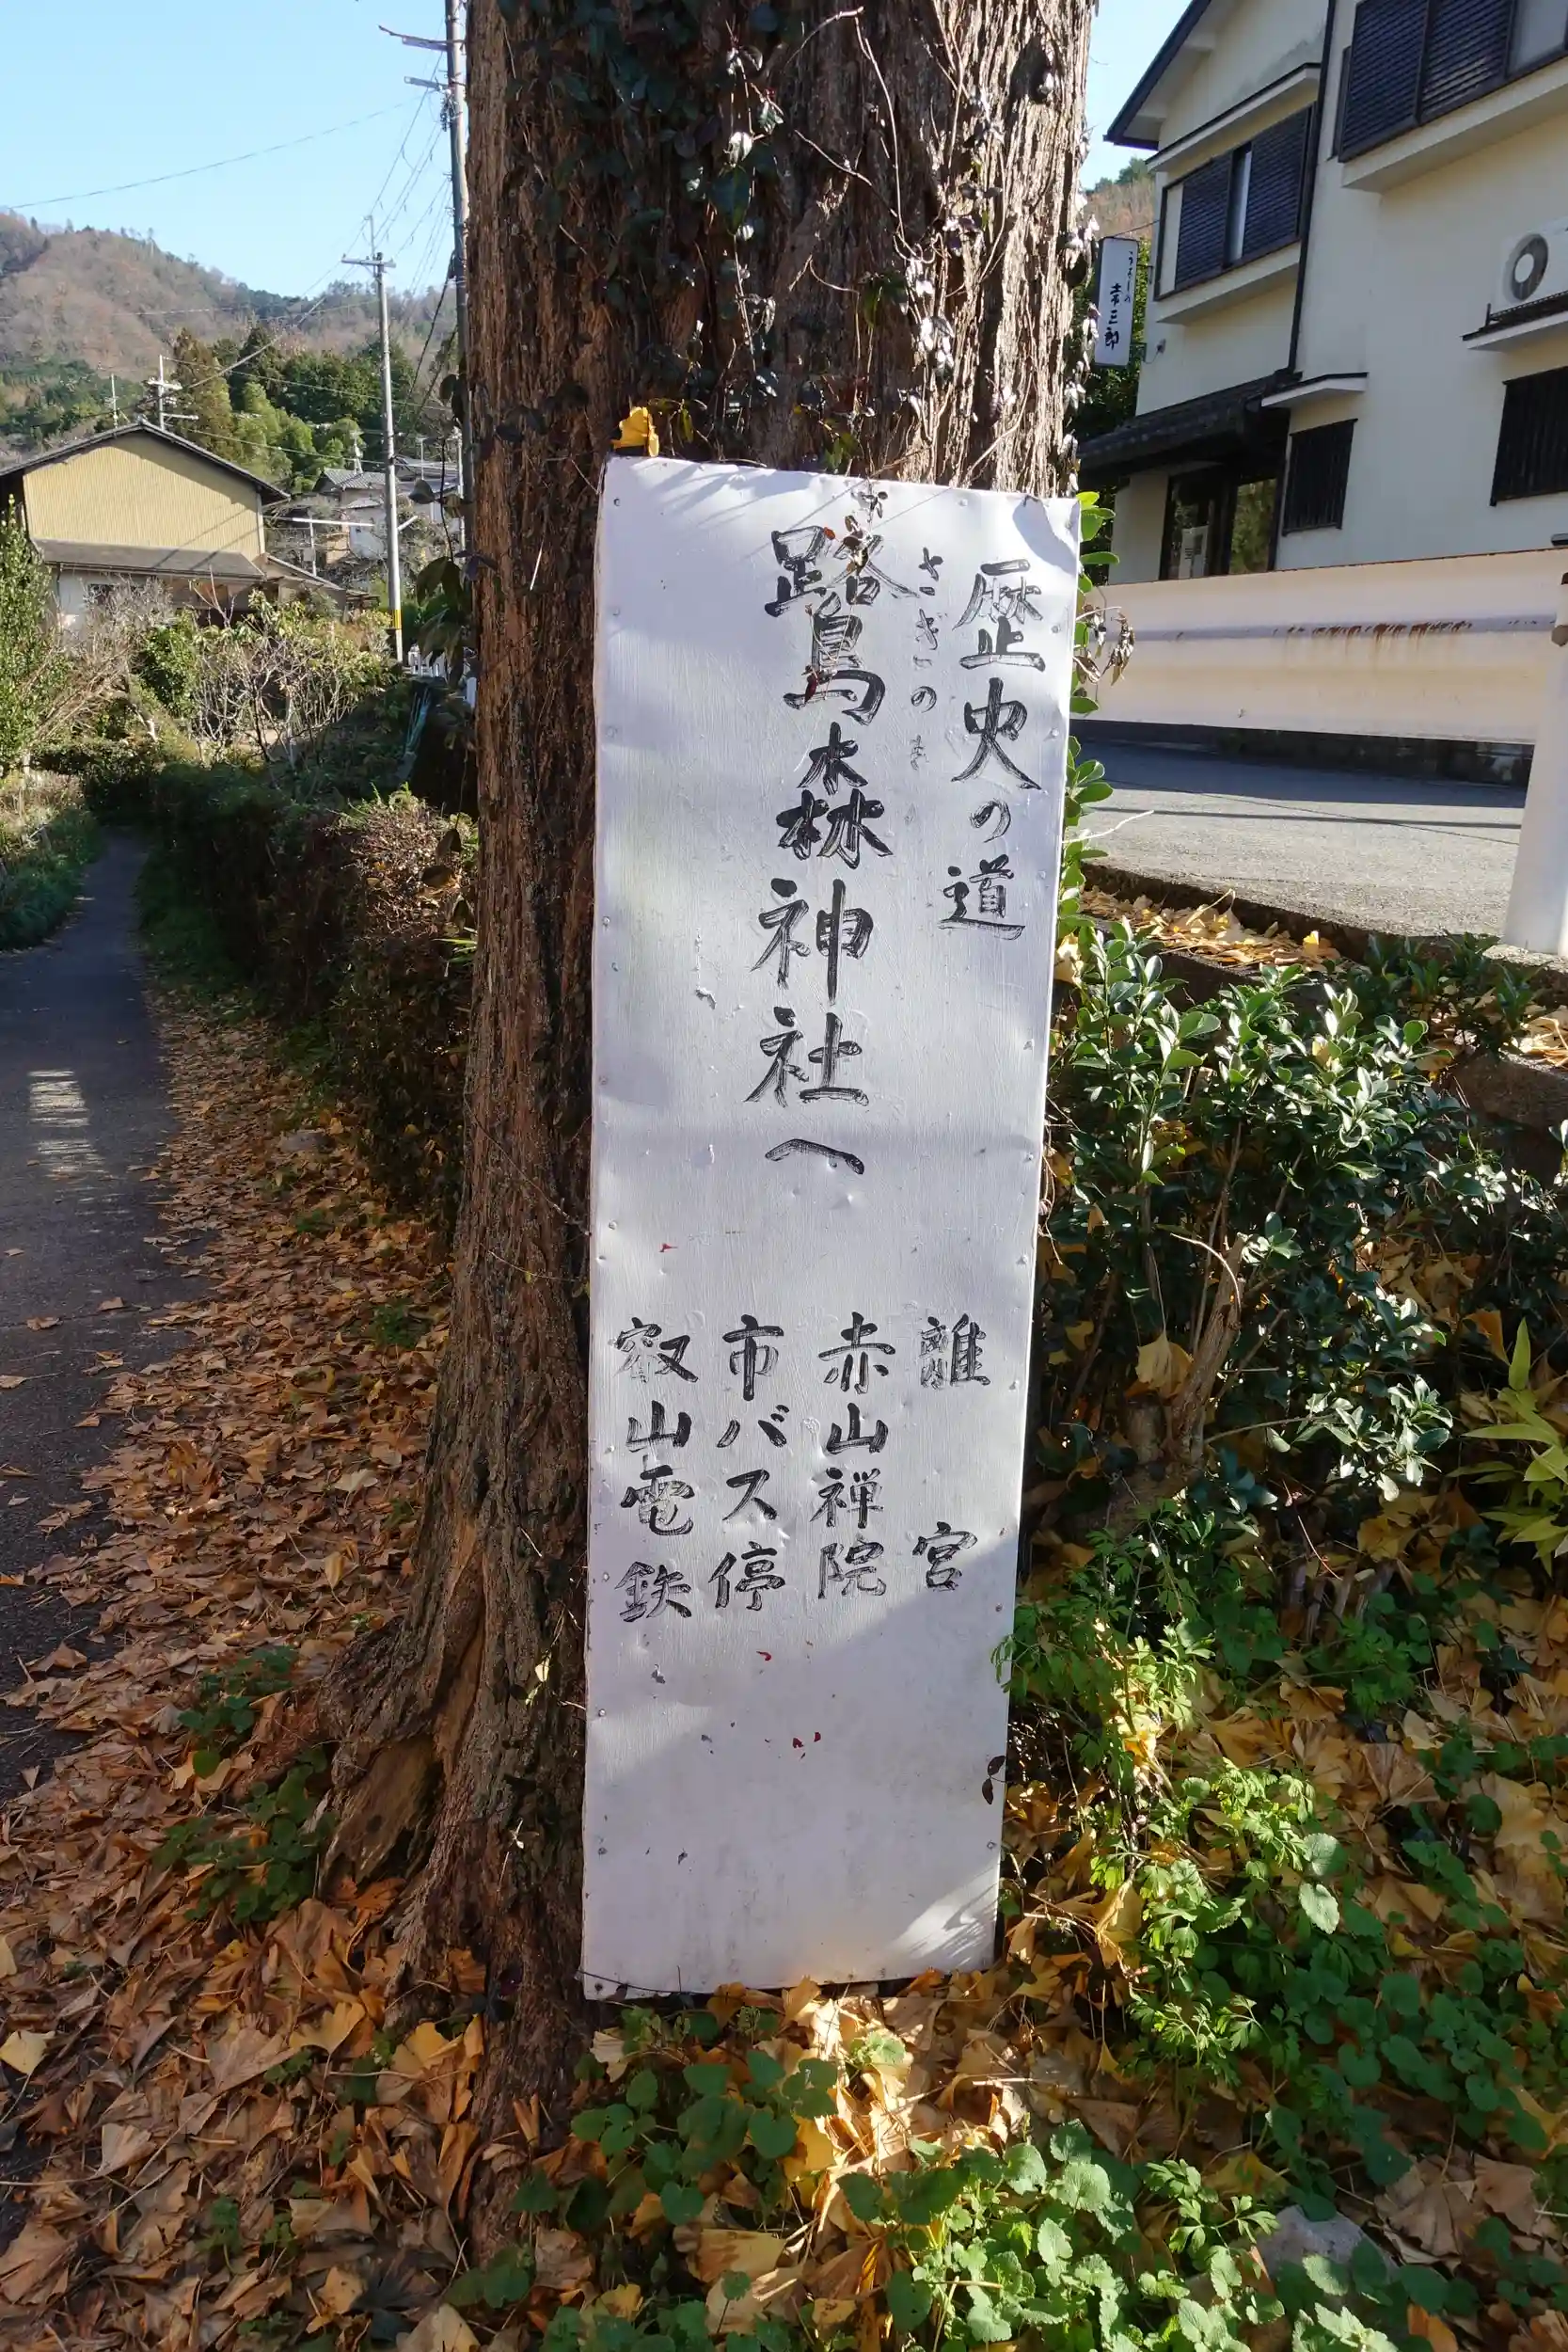 歴史の道
さぎのま
鷺森神社へ
離宮
赤山禅院
市バス停
叡山電鉄